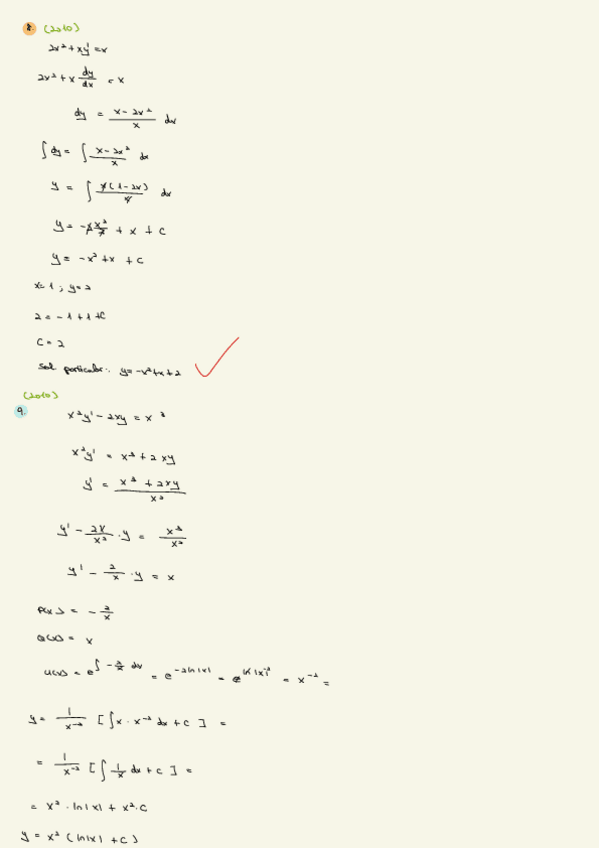 8. (2010)
2x² + xy' = x
2x² + x dy/dx = x
dy = (x - 2x²)/x dx
∫dy = ∫ (x - 2x²)/x dx
y = ∫ x(1 - 2x)/x dx
y = -2x²/2 + x + C
y = -x² + x + C
x = 1 ; y = 2
2 = -1 + 1 + C
C = 2
Sol particular: y = -x² + x + 2
(2010)
9. x²y' - 2xy = x³
x²y' = x³ + 2xy
y' = (x³ + 2xy)/x²
y' - 2x/x² · y = x³/x²
y' - 2/x · y = x
P(x) = - 2/x
Q(x) = x
u(x) = e^∫ -2/x dx = e^(-2 ln|x|) = e^(ln|x|^-2) = x^-2 =
y = 1/x^-2 [∫ x · x^-2 dx + C] =
= 1/x^-2 [∫ 1/x dx + C] =
= x² · ln|x| + x² · C
y = x² (ln|x| + C)